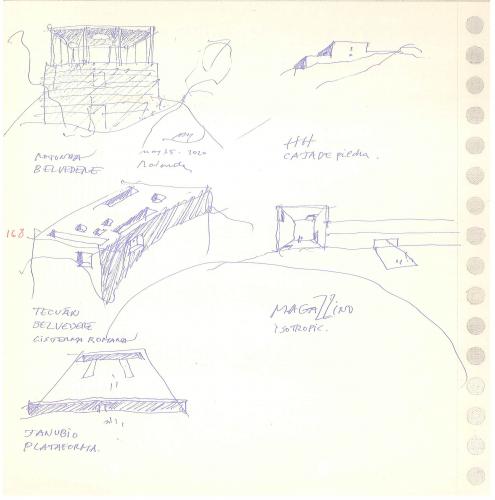 ROTONDA
BELVEDERE
may 25 - 2020
Rotonda
HH
CAJA DE piedra.
168
TECUÁN
BELVEDERE
CISTERNA ROMANA
MAGAZZINO
ISOTROPIC.
JANUBIO
PLATAFORMA.